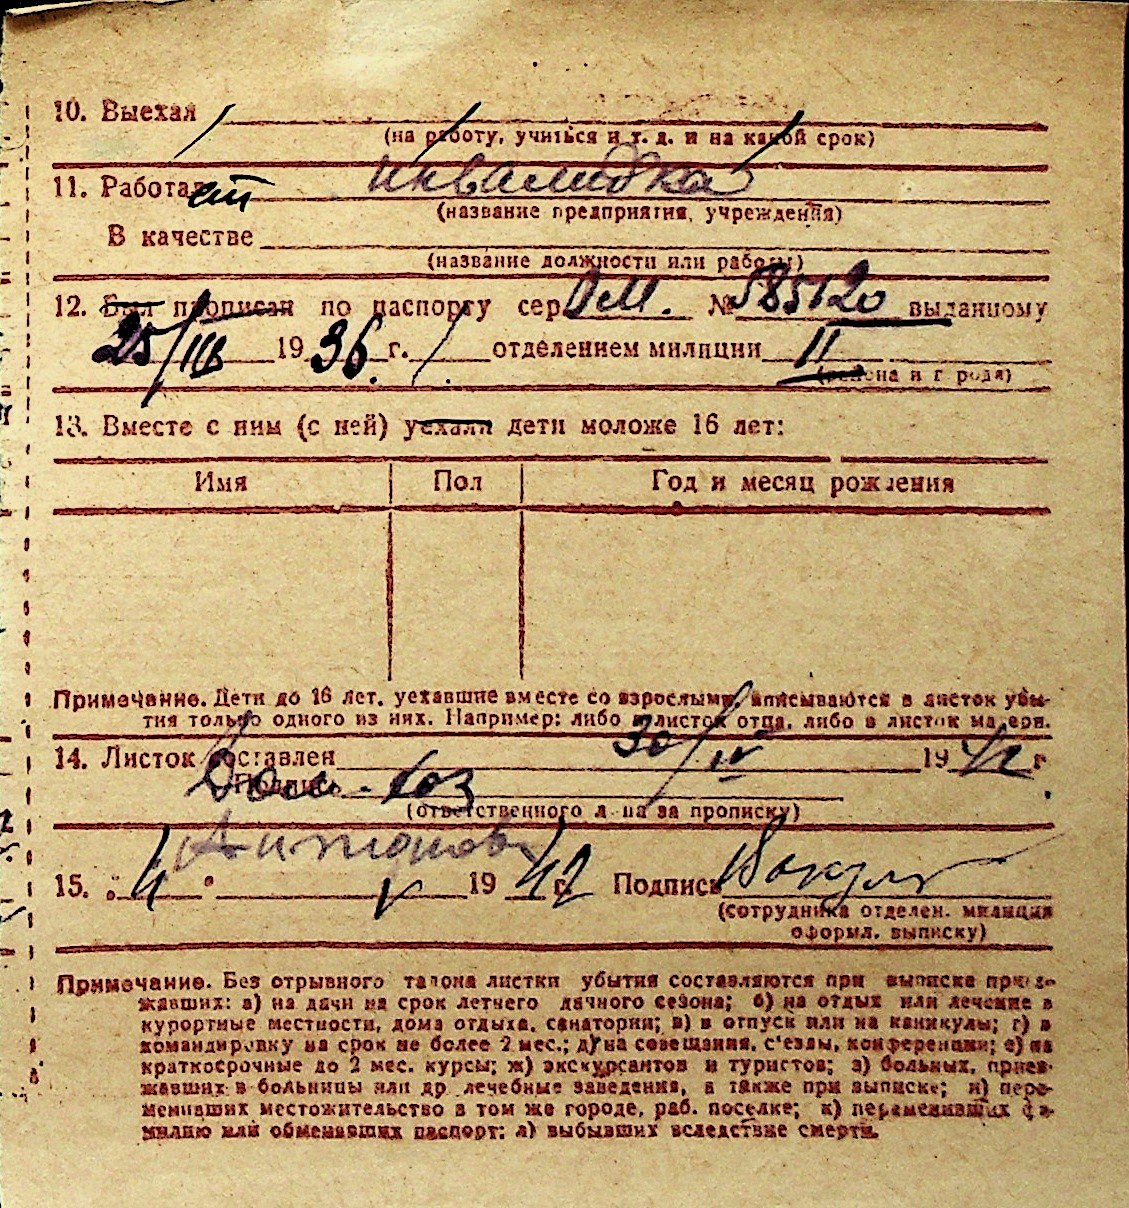 10. Выехал
(на работу, учиться и т. д. и на какой срок)
11. Работает инвалидка
(название предприятия, учреждения)
В качестве
(название должности или работы)
12. Был прописан по паспорту сер. ОМ. № 585120 выданному
25/III 1936 г. / отделением милиции 11
(района и города)
13. Вместе с ним (с ней) уехали дети моложе 16 лет:
Имя Пол Год и месяц рождения
Примечание. Дети до 16 лет, уехавшие вместе со взрослыми, вписываются в листок убы-
тия только одного из них. Например: либо в листок отца, либо в листок матери.
14. Листок составлен 30/IV 1942 г
Подпись Дом-хоз
(ответственного л-ца за прописку)
15. „4“ V 1942 г. Подпись
(сотрудника отделен. милиции
оформл. выписку)
Примечание. Без отрывного талона листки убытия составляются при выписке приез-
жавших: а) на дачи на срок летнего дачного сезона; б) на отдых или лечение в
курортные местности, дома отдыха, санатории; в) в отпуск или на каникулы; г) в
командировку на срок не более 2 мес.; д) на совещания, с'езды, конференции; е) на
краткосрочные до 2 мес. курсы; ж) экскурсантов и туристов; з) больных, приез-
жавших в больницы или др. лечебные заведения, а также при выписке; и) пере-
менивших местожительство в том же городе, раб. поселке; к) переменивших фа-
милию или обменявших паспорт; л) выбывших вследствие смерти.